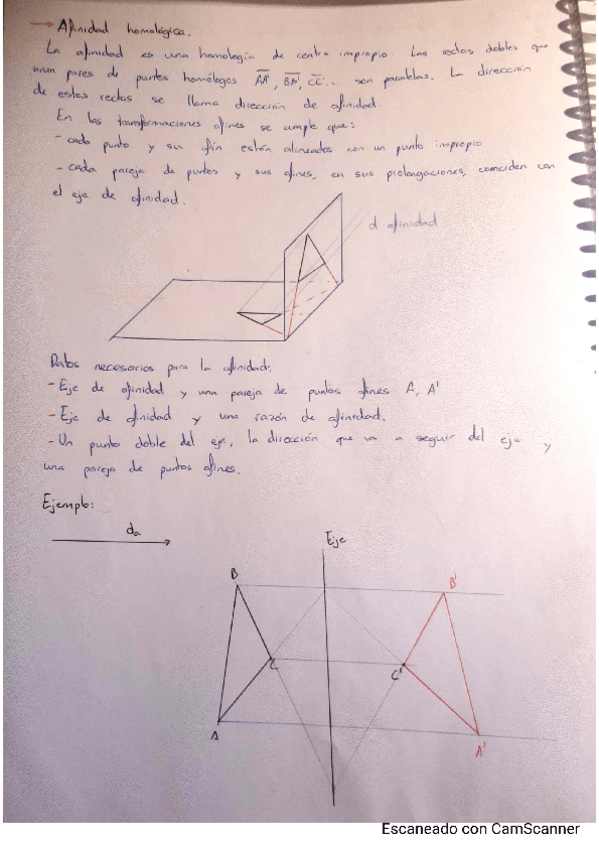 → Afinidad homológica.
La afinidad es una homología de centro impropio. Las rectas dobles que
unen pares de puntos homólogos AA', BB', CC'... son paralelas. La dirección
de estas rectas se llama dirección de afinidad.
En las transformaciones afines se cumple que:
- cada punto y su afín están alineados con un punto impropio
- cada pareja de puntos y sus afines, en sus prolongaciones, coinciden con
el eje de afinidad.
d afinidad
Datos necesarios para la afinidad:
- Eje de afinidad y una pareja de puntos afines A, A'
- Eje de afinidad y una razón de afinidad.
- Un punto doble del eje, la dirección que va a seguir del eje y
una pareja de puntos afines.
Ejemplo:
da
Eje
B
B'
C
C'
A
A'
Escaneado con CamScanner